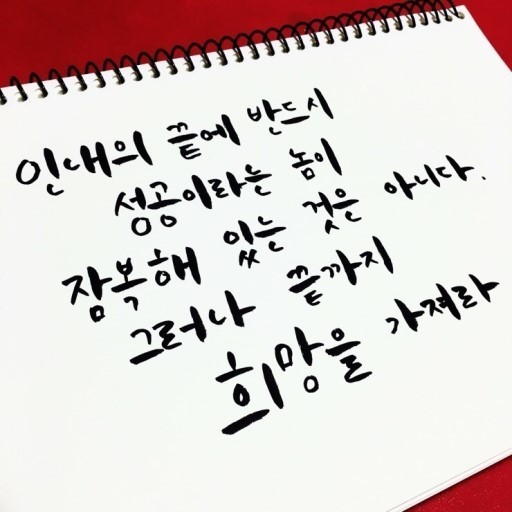 인내의 끝에 반드시
성공이라는 놈이
잠복해 있는 것은 아니다.
그러나 끝까지
희망을 가져라